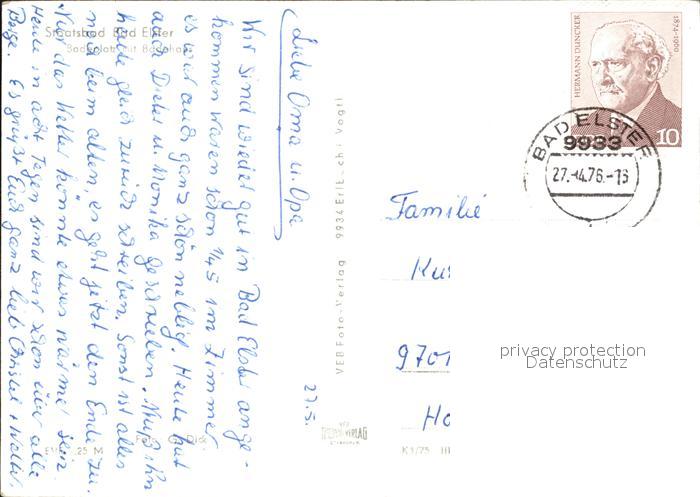 Staatsbad Bad Elster
Badeplatz mit Badehaus
Liebe Oma u. Opa
Wir sind wieder gut in Bad Elster ange-
kommen waren schon 1/45 im Zimmer
es war auch ganz schön neblig. Heute hat
auch Dieter u. Monika geschrieben. Muß ihn
heute gleich zurück schreiben. Sonst ist alles
noch beim alten, es geht jetzt den Ende zu.
Nur das Wetter könnte etwas wärmer sein.
Heute in acht Tagen sind wir schon über alle
Berge. Es grüßt Euch ganz lieb Christel + Walter
27.5.
Foto: Dick
25 M
VEB Foto-Verlag 9934 Erlbach i. Vogtl
VEB
K 1/75 III
HERMANN DUNCKER
1874-1960
10
BAD ELSTER
9933
27.-4.76.-16
Familie
Ku
9701
Ho
privacy protection
Datenschutz